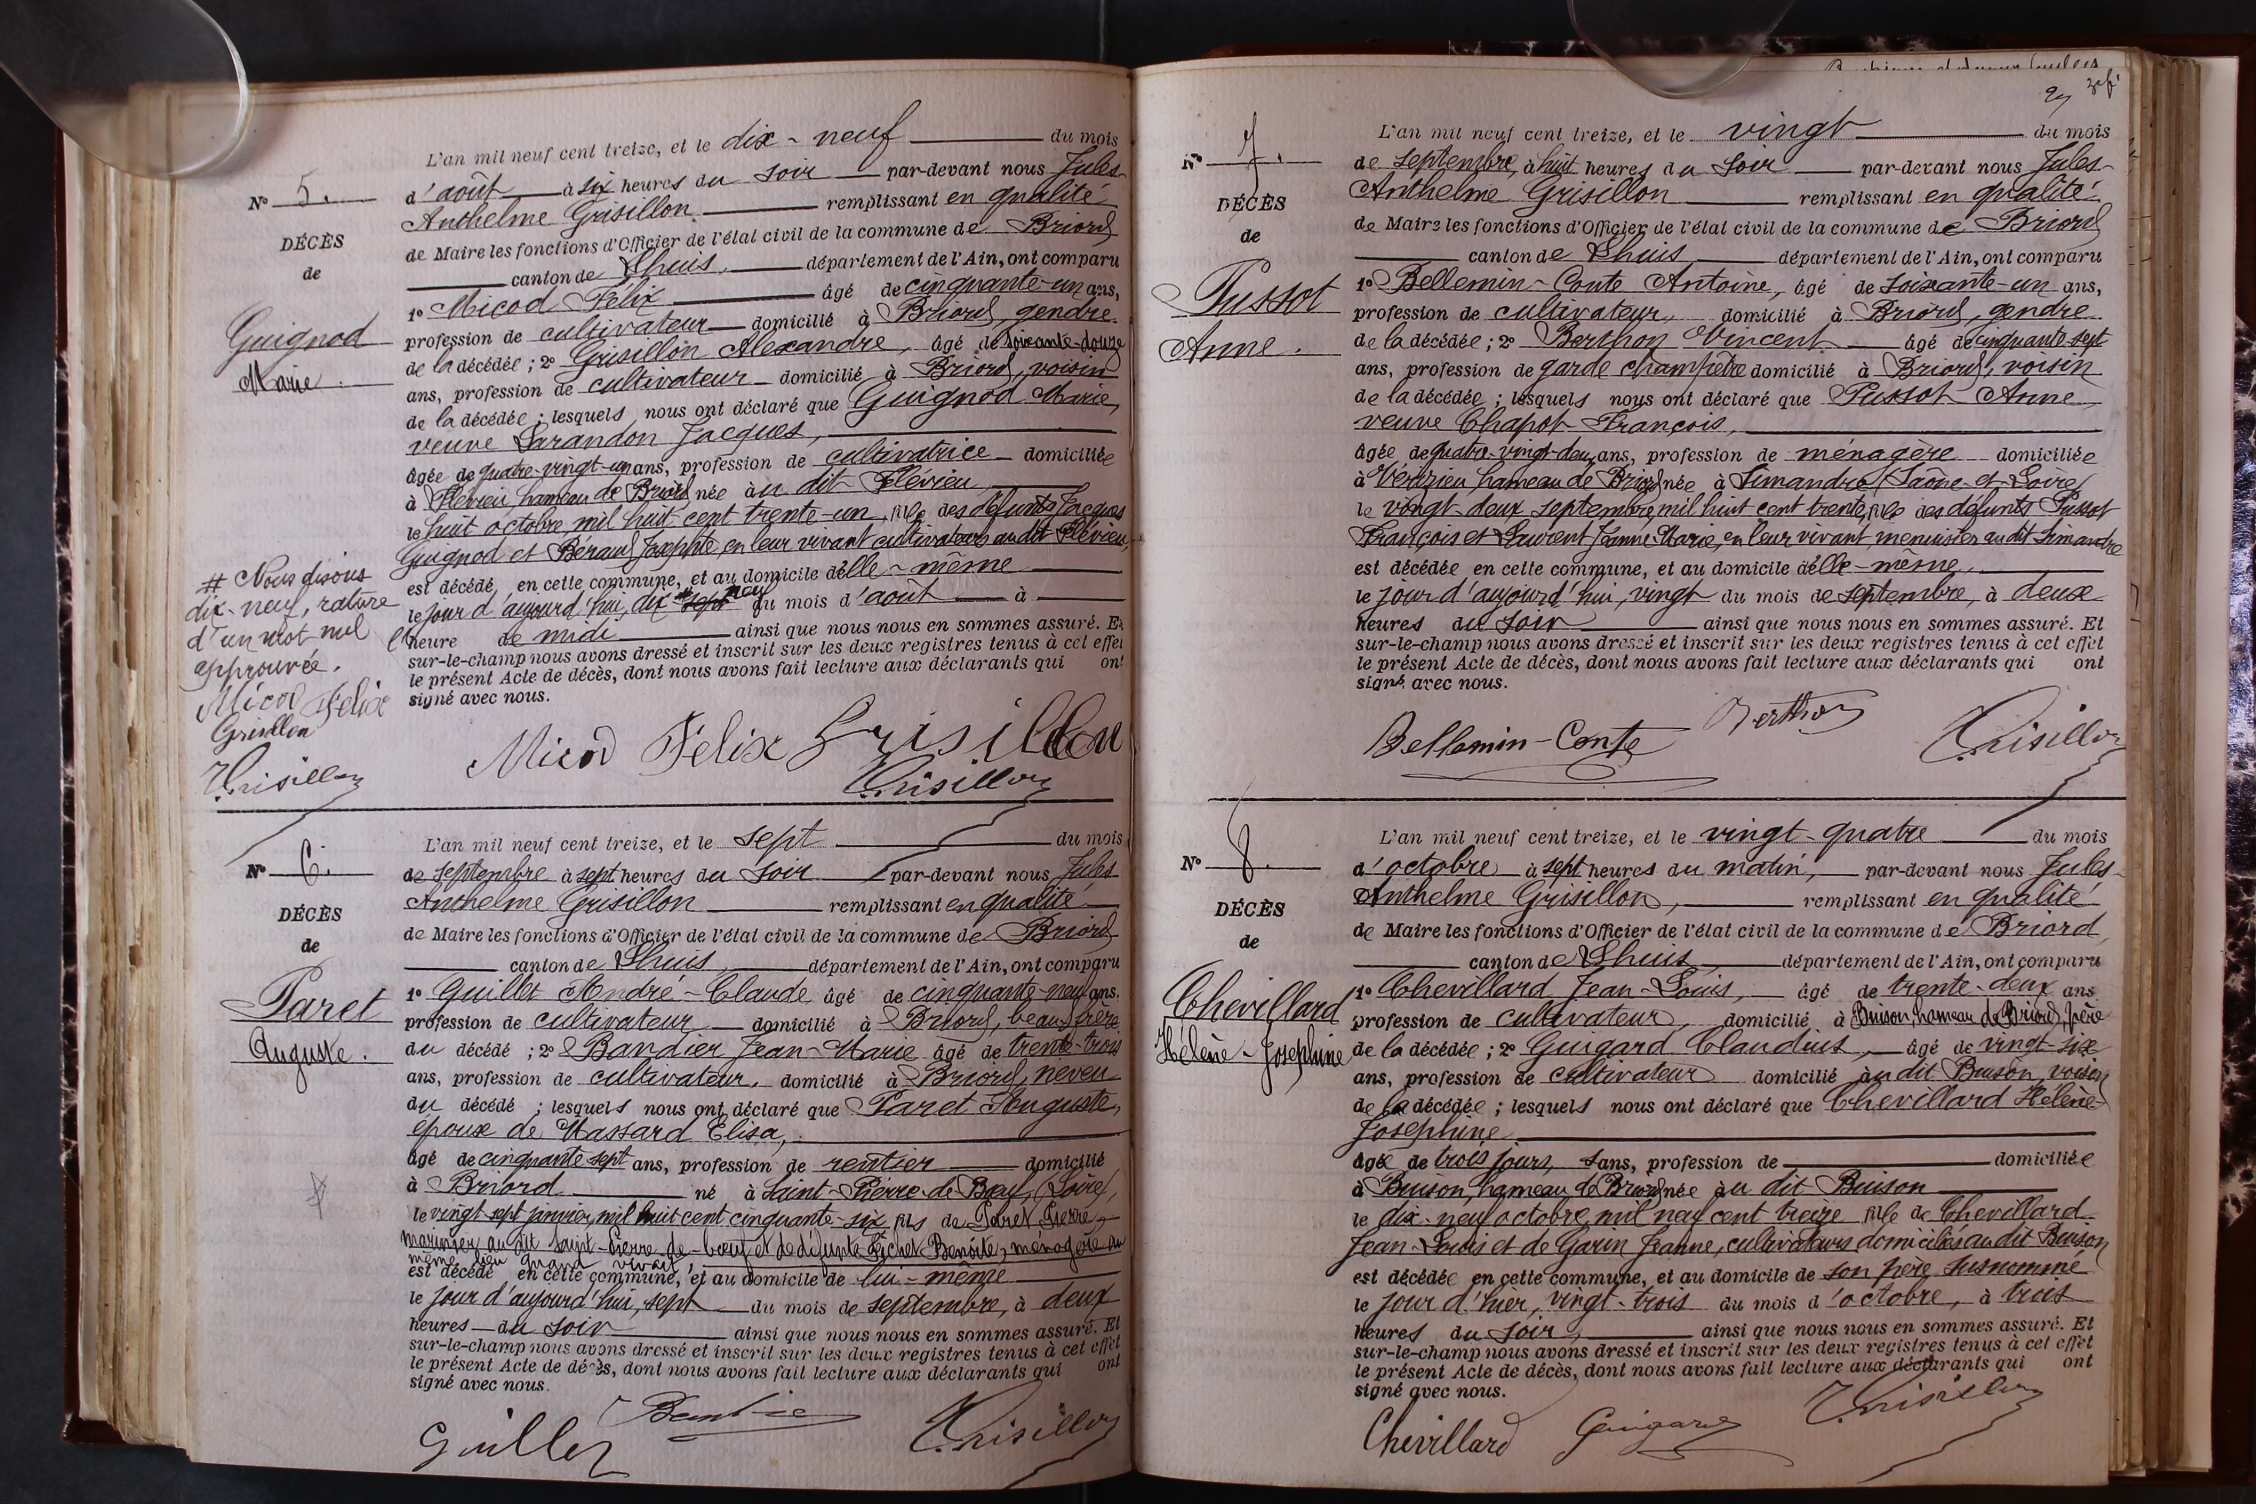 L'an mil neuf cent treize, et le dix-neuf du mois
d'août à six heures du soir par-devant nous Jules-
Anthelme Grisillon remplissant en qualité
de Maire les fonctions d'Officier de l'état civil de la commune de Briord
canton de Lhuis, département de l'Ain, ont comparu
1o Micod Félix âgé de cinquante-un ans,
profession de cultivateur domicilié à Briord, gendre
de la décédée ; 2o Grisillon Alexandre, âgé de soixante-douze
ans, profession de cultivateur domicilié à Briord, voisin
de la décédée ; lesquels nous ont déclaré que Guignod Marie,
veuve Larandon Jacques,
âgée de quatre-vingt-un ans, profession de cultivatrice domiciliée
à Flévieu, hameau de Briord née au dit Flévieu
le huit octobre mil huit cent trente-un, fille des défunts Jacques
Guignod et Béraud Josephte, en leur vivant cultivateurs au dit Flévieu,
est décédé en cette commune, et au domicile d'elle-même
le jour d'aujourd'hui, dix-#sept neuf du mois d'août à
l'heure de midi ainsi que nous nous en sommes assuré. Et
sur-le-champ nous avons dressé et inscrit sur les deux registres tenus à cet effet
le présent Acte de décès, dont nous avons fait lecture aux déclarants qui ont
signé avec nous.
No 5.
DÉCÈS
de
Guignod
Marie.
# Nous disons
dix-neuf, rature
d'un mot nul
approuvée.
Micod Felix
Grisillon
Grisillon
Micod Felix Grisillon
Grisillon
No 6.
DÉCÈS
de
Paret
Auguste.
L'an mil neuf cent treize, et le sept du mois
de septembre à sept heures du soir par-devant nous Jules
Anthelme Grisillon remplissant en qualité
de Maire les fonctions d'Officier de l'état civil de la commune de Briord
canton de Lhuis, département de l'Ain, ont comparu
1o Guillet André-Claude âgé de cinquante-neuf ans.
profession de cultivateur domicilié à Briord, beau-frère
du décédé ; 2o Bandier Jean-Marie âgé de trente-trois
ans, profession de cultivateur, domicilié à Briord, neveu
du décédé ; lesquels nous ont déclaré que Paret Auguste,
époux de Massard Elisa,
âgé de cinquante sept ans, profession de rentier domicilié
à Briord né à Saint-Pierre-de-Bœuf, (Loire),
le vingt sept janvier mil huit cent cinquante-six fils de Paret Pierre,
marinier au dit Saint-Pierre-de-bœuf et de défunte Benoite, ménagère au
même lieu quand vivait,
est décédé en cette commune, et au domicile de lui-même
le jour d'aujourd'hui, sept du mois de septembre, à deux
heures du soir ainsi que nous nous en sommes assuré. Et
sur-le-champ nous avons dressé et inscrit sur les deux registres tenus à cet effet
le présent Acte de décès, dont nous avons fait lecture aux déclarants qui ont
signé avec nous.
Guillet
Grisillon
27
No 7.
DÉCÈS
de
Pussot
Anne.
L'an mil neuf cent treize, et le vingt du mois
de septembre, à huit heures du soir par-devant nous Jules-
Anthelme Grisillon remplissant en qualité
de Maire les fonctions d'Officier de l'état civil de la commune de Briord
canton de Lhuis département de l'Ain, ont comparu
1o Bellemin-Conte Antoine, âgé de soixante-un ans,
profession de cultivateur, domicilié à Briord, gendre
de la décédée ; 2o Berthon Vincent âgé de cinquante-sept
ans, profession de garde champêtre domicilié à Briord, voisin
de la décédée ; lesquels nous ont déclaré que Pussot Anne
veuve Chapot François,
âgée de quatre-vingt-deux ans, profession de ménagère domiciliée
à Vérizieu hameau de Briord née à Simandre, (Saône-et-Loire)
le vingt-deux septembre mil huit cent trente, fille des défunts Pussot
François et Laurent Jeanne-Marie, en leur vivant menuisier au dit Simandre
est décédée en cette commune, et au domicile d'elle-même,
le jour d'aujourd'hui, vingt du mois de septembre, à deux
heures du soir ainsi que nous nous en sommes assuré. Et
sur-le-champ nous avons dressé et inscrit sur les deux registres tenus à cet effet
le présent Acte de décès, dont nous avons fait lecture aux déclarants qui ont
signé avec nous.
Bellemin-Conte Berthon Grisillon
No 8.
DÉCÈS
de
Chevillard
Hélène-Joséphine
L'an mil neuf cent treize, et le vingt-quatre du mois
d'octobre à sept heures du matin, par-devant nous Jules-
Anthelme Grisillon, remplissant en qualité
de Maire les fonctions d'Officier de l'état civil de la commune de Briord
canton de Lhuis département de l'Ain, ont comparu
1o Chevillard Jean-Louis, âgé de trente-deux ans
profession de cultivateur, domicilié à Buison, hameau de Briord, père
de la décédée ; 2o Guigard Claudius, âgé de vingt-six
ans, profession de cultivateur domicilié au dit Buison, voisin
de la décédée ; lesquels nous ont déclaré que Chevillard Hélène-
Joséphine
âgée de trois jours, sans, profession de domiciliée
à Buison, hameau de Briord née au dit Buison
le dix-neuf octobre mil neuf cent treize fille de Chevillard
Jean-Louis et de Garin Jeanne, cultivateurs domiciliés au dit Buison
est décédée en cette commune, et au domicile de son père susnommé
le jour d'hier, vingt-trois du mois d'octobre, à trois
heures du soir, ainsi que nous nous en sommes assuré. Et
sur-le-champ nous avons dressé et inscrit sur les deux registres tenus à cet effet
le présent Acte de décès, dont nous avons fait lecture aux déclarants qui ont
signé avec nous.
Chevillard Guigard Grisillon